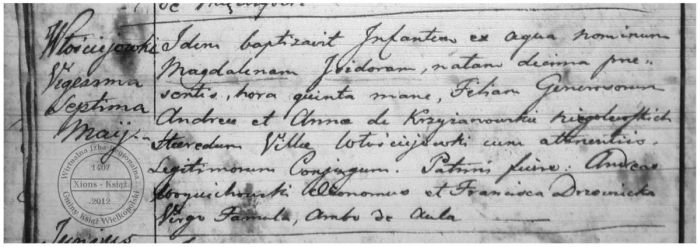 Włościejewki
Vigesima
Septima
Maij
Idem baptizavit Infantem ex aqua nominum
Magdalenam Isidoram, natam decima prae-
sentis, hora quinta mane, Filiam Generosorum
Andreae et Annae de Krzyżanowski Niegolewskich
Haeredum Villae Włościejewki cum attinentiis.
Legitimorum Conjugum. Patrini fuere: Andreas
Oeconomus et Francisca Drzewiecka
Virgo Famula, Ambo de Aula
Junius
Wirtualna Izba Regionalna
1407
Xions - Książ
2012
Gminy Książ Wielkopolski